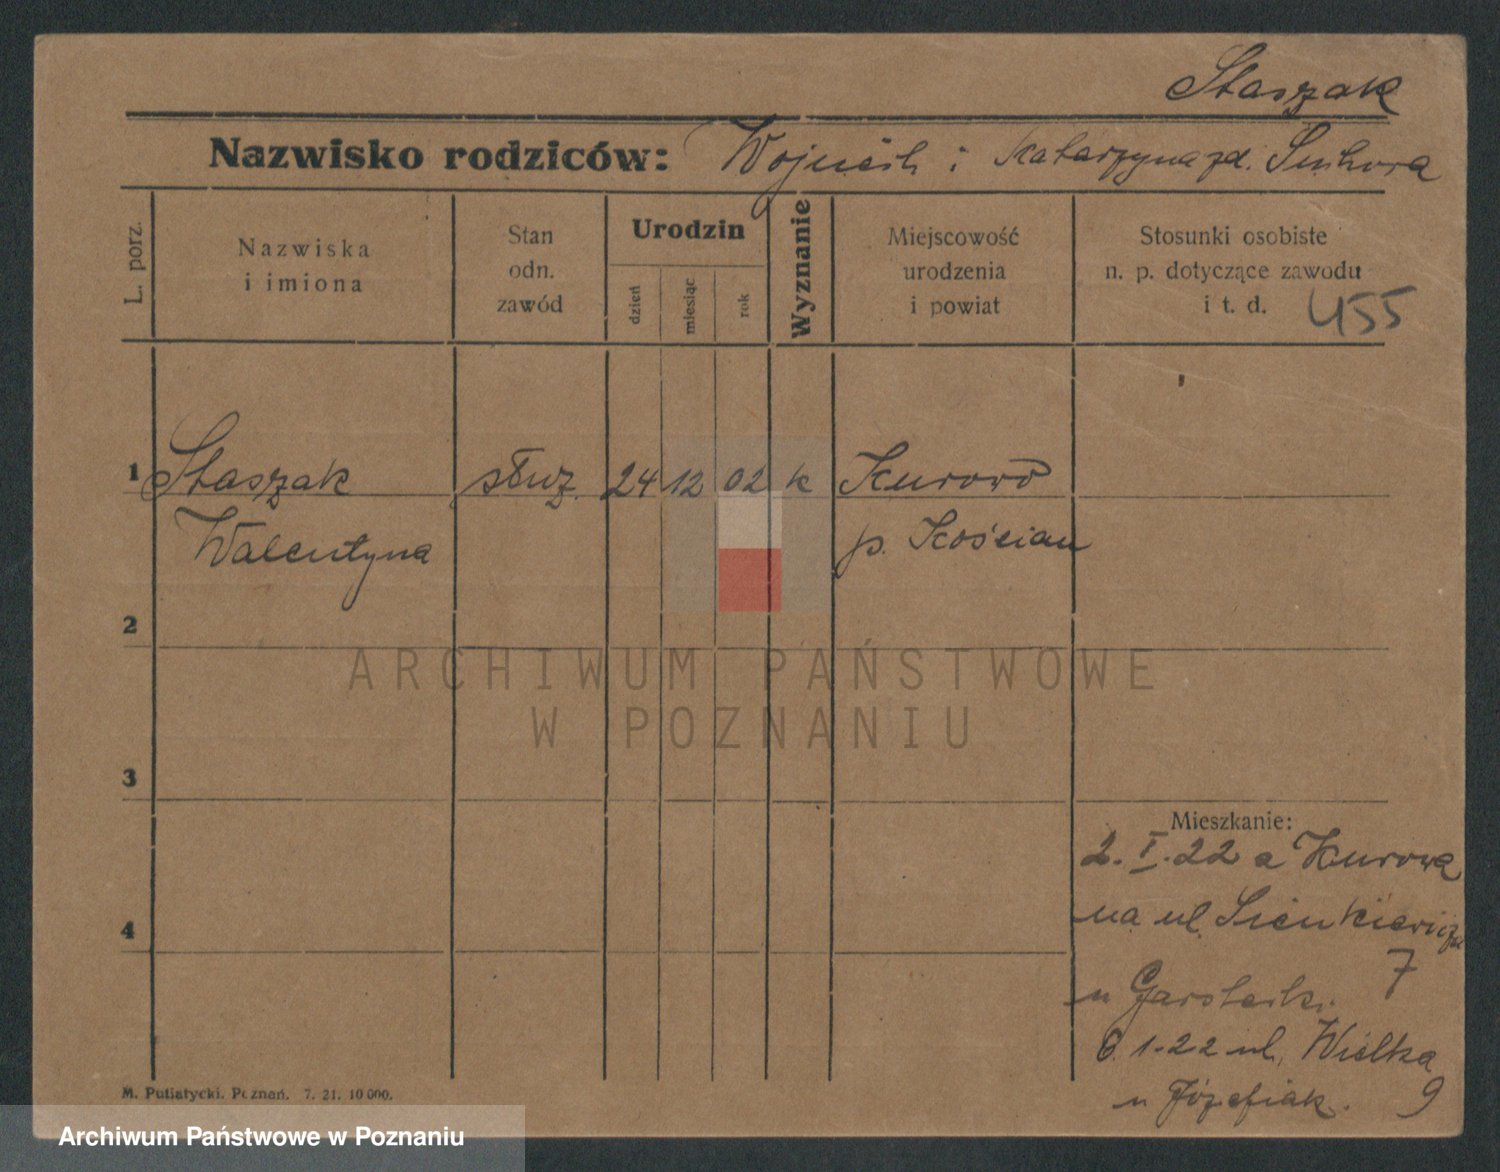 Staszak
Nazwisko rodziców: Wojciech i Katarzyna zd.
L. porz.
Nazwiska
i imiona
Stan
odn.
zawód
Urodzin
dzień
miesiąc
rok
Wyznanie
Miejscowość
urodzenia
i powiat
Stosunki osobiste
n. p. dotyczące zawodu
i t. d. 455
1 Staszak służ. 24 12 02 k Kurowo
Walentyna p. Kościan
2
ARCHIWUM PAŃSTWOWE
W POZNANIU
3
Mieszkanie:
2. I. 22 a Kurowa
4 na ul. Sienkiewicza
7
u
6. 1. 22 ul. Wielka
u Józefiak. 9
M. Putiatycki. Poznań. 7. 21. 10 000.
Archiwum Państwowe w Poznaniu